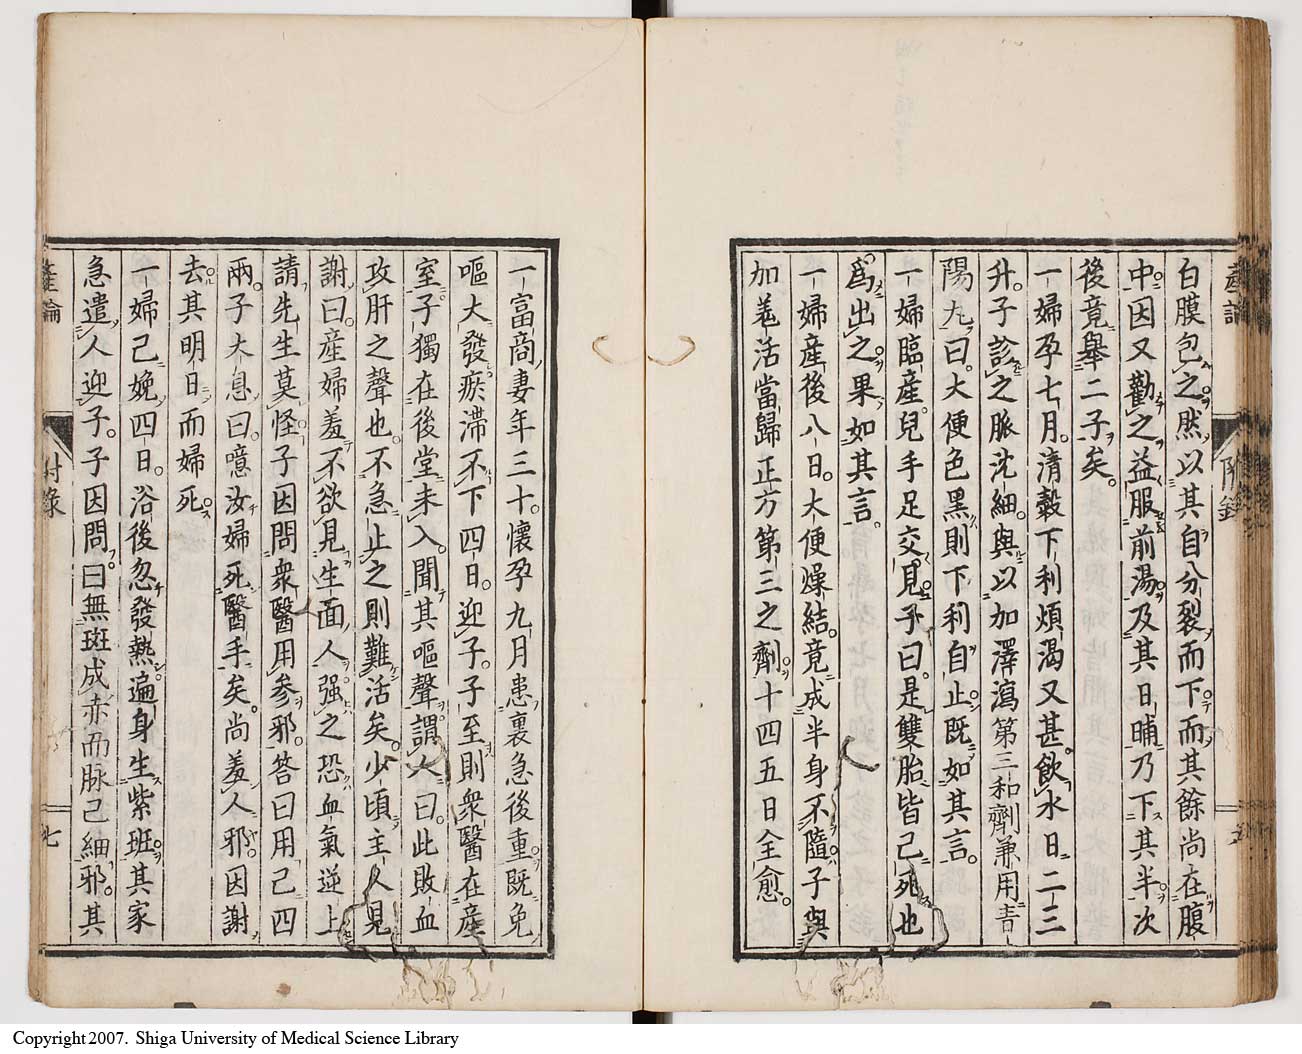 產論
附錄
白膜包之然以其自分裂而下而其餘尚在腹
中因又勸之益服前湯及其日晡乃下其半次
後竟舉二子矣。
一婦孕七月。清穀下利煩渴又甚。飲水日二三
升。子診之脈沈細。與以加澤瀉第三和劑兼用青
陽丸。曰。大便色黑則下利自止既如其言。
一婦臨產。兒手足交見。予曰。是雙胎皆已死也
爲出之果如其言。
一婦產後八日。大便燥結。竟成半身不隨。子與
加養活當歸正方第三之劑十四五日全愈。
一富商妻年三十。懷孕九月患裏急後重。既免
嘔大發瘀滞不下四日。迎子。子至則衆醫在產
室。子獨在後堂未入。聞其嘔聲。謂人曰。此敗血
攻肝之聲也。不急止之則難活矣。少頃主人見
謝曰。産婦羞不欲見生面人。强之恐血氣逆上
請先生莫怪。子因問衆醫用參邪。答曰用已四
兩。子太息曰。噫汝婦死醫手矣。尚羞人邪。因謝
去。其明日而婦死。
一婦已娩四日。浴後忽發熱。遍身生紫斑。其家
急遣人迎子。子因問。曰無斑成赤而脉已細邪。其
產論
附錄
七
Copyright 2007. Shiga University of Medical Science Library